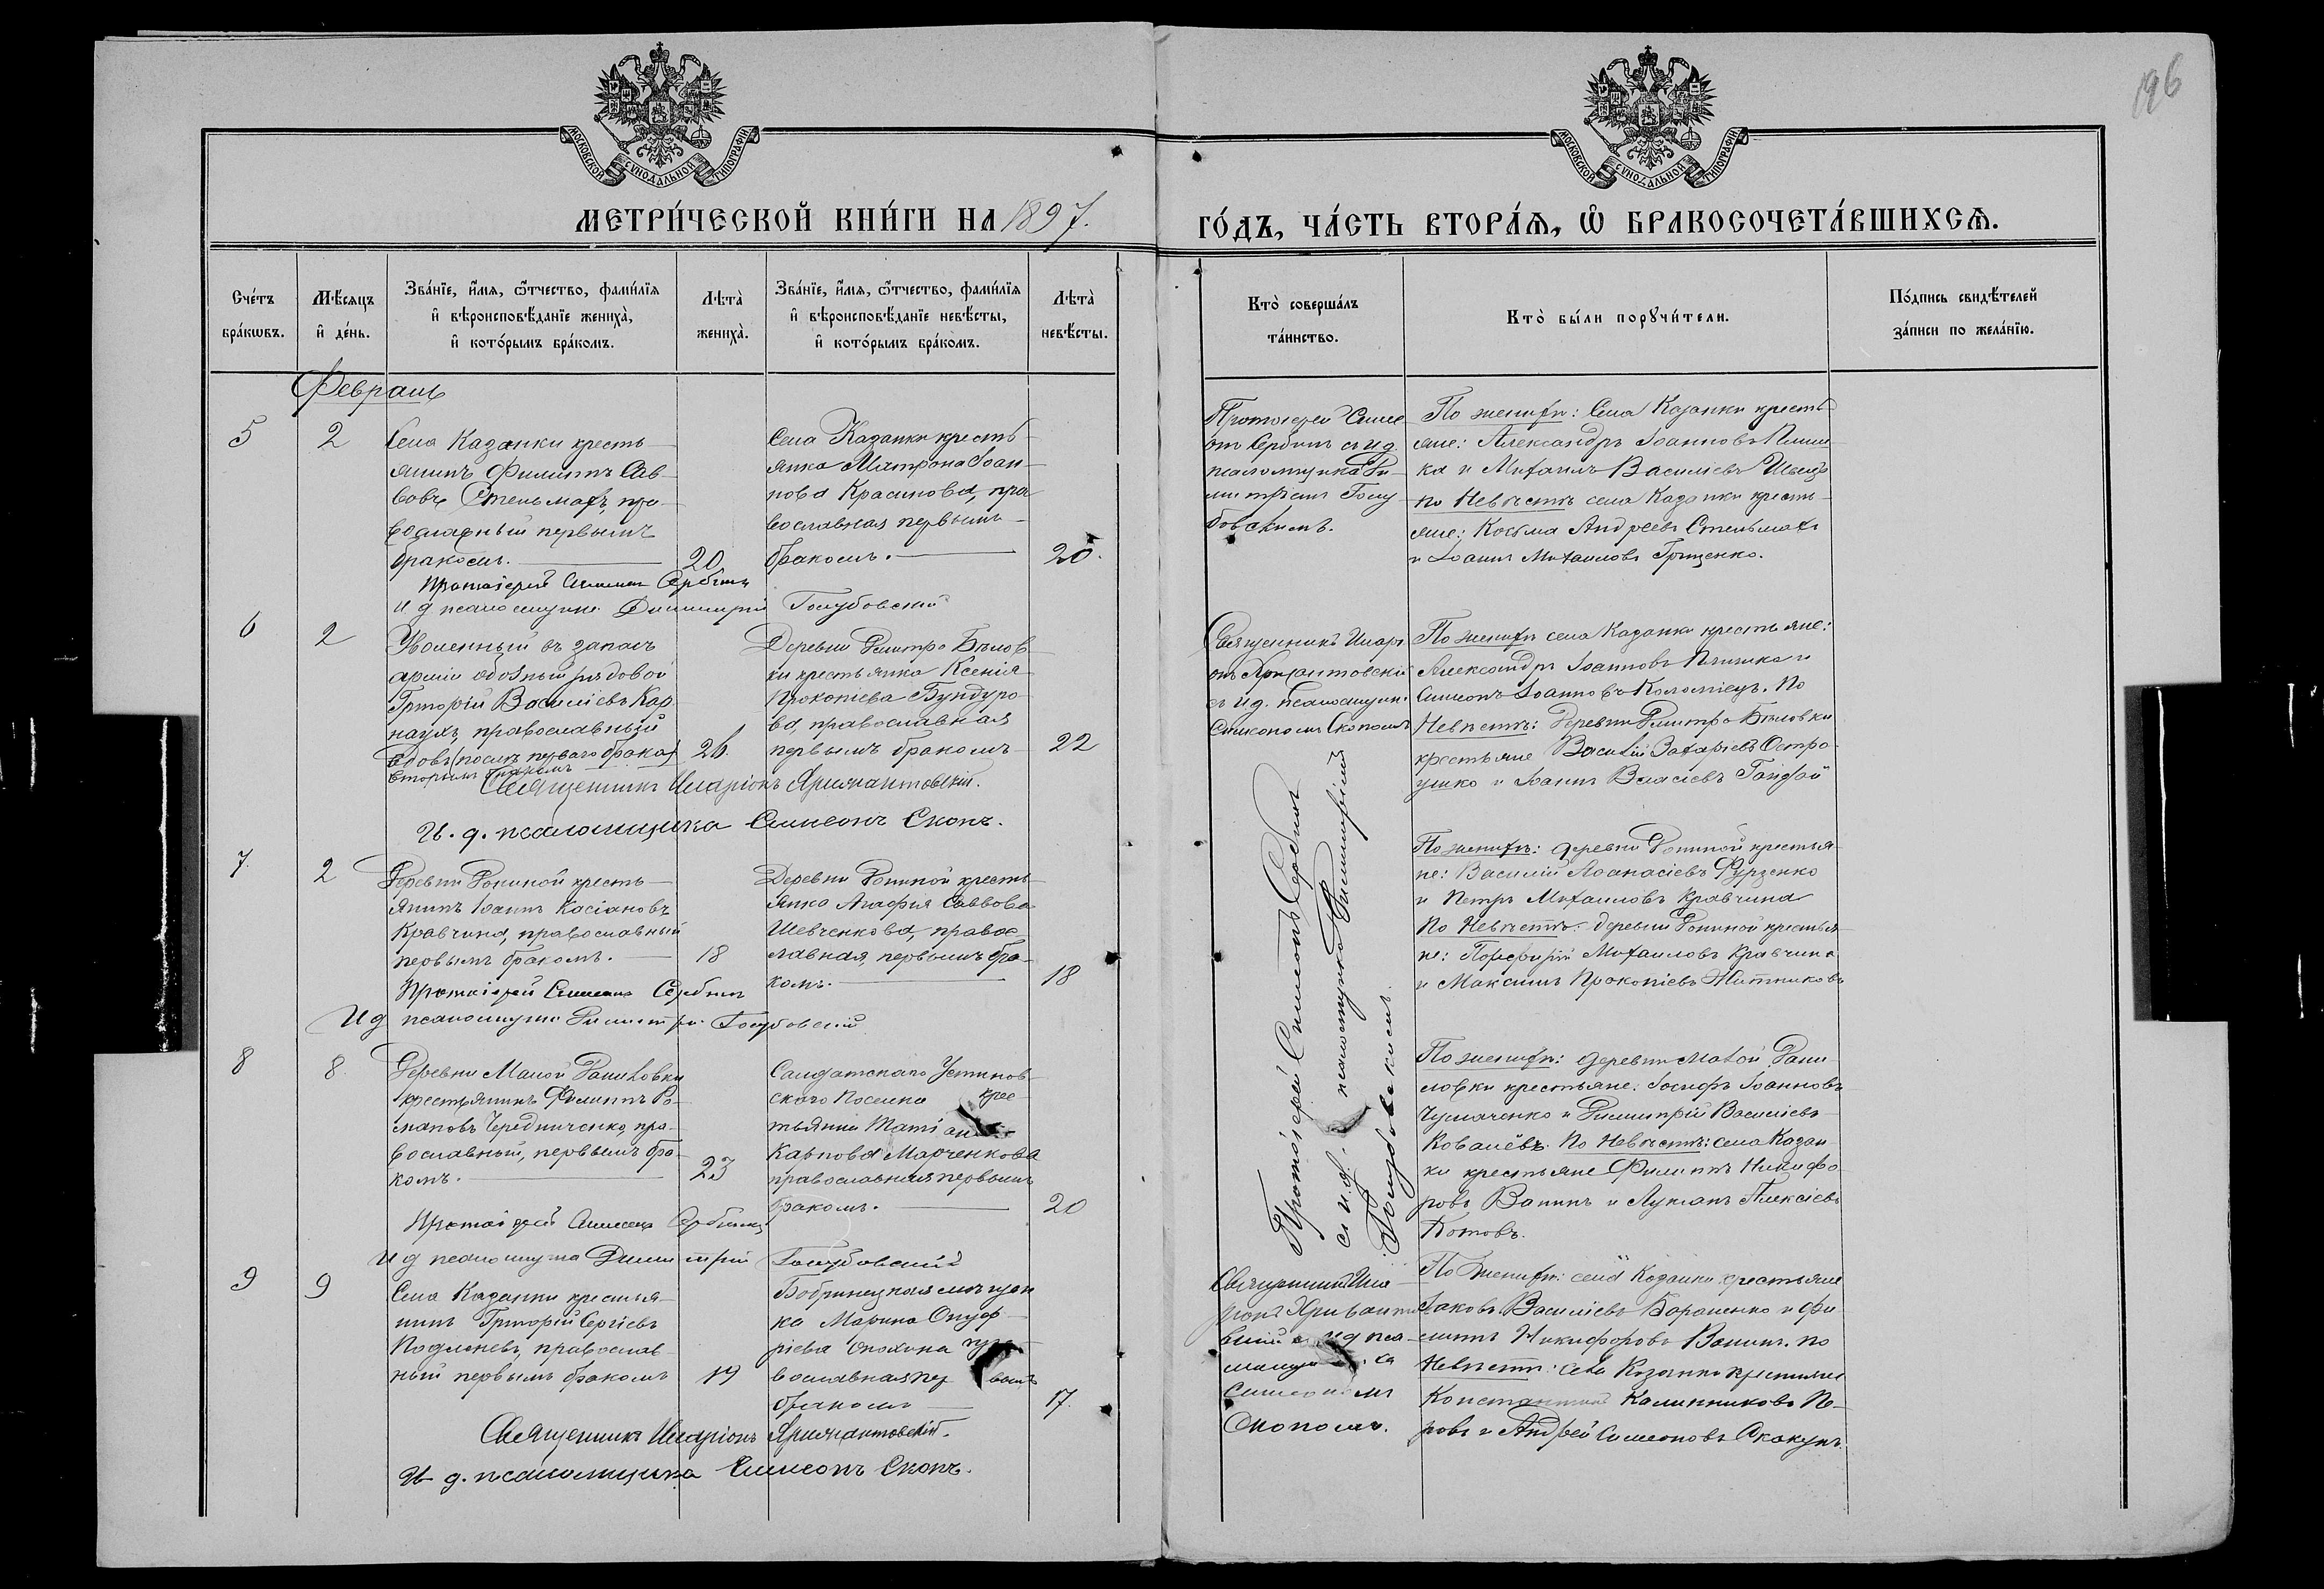 196
МОСКОВСКОЙ СѴНОДАЛЬНОЙ ТИПОГРАФІИ
МОСКОВСКОЙ СѴНОДАЛЬНОЙ ТИПОГРАФІИ
МЕТРИ́ЧЕСКОЙ КНИ́ГИ НА 1897.
ГО́ДЪ, ЧА́СТЬ ВТОРА́Ѧ, Ѡ҆ БРАКОСОЧЕТА́ВШИХСѦ.
Сче́тъ
бра́кѡвъ.
Мѣ́сяцъ
и҆ де́нь.
Зва́нїе, и҆́мѧ, ѻ҆́тчество, фами́лїѧ
и҆ вѣроисповѣ́данїе жениха̀,
и҆ кото́рымъ бра́комъ.
Лѣта̀
жениха̀.
Зва́нїе, и҆́мѧ, ѻ҆́тчество, фами́лїѧ
и҆ вѣроисповѣ́данїе невѣ́сты,
и҆ кото́рымъ бра́комъ.
Лѣта̀
невѣ́сты.
Кто̀ соверша́лъ
та́инство.
Кто̀ бы́ли порꙋчи́тели.
По́дпись свидѣ́телей
за́писи по жела́нїю.
Февраль
5
2
Села Казанки кресть-
янинъ Филиппъ Сав-
вовъ Стельмахъ, пра-
вославный первымъ
бракомъ.
20
Села Казанки кресть-
янка Матрона Іоан-
нова Красинова, пра
вославная первымъ
бракомъ.
20.
Протоіерей Симе
онъ Сербинъ съ и.д.
псаломщика Ди-
митріемъ Голу
бовскимъ.
По женихѣ: Села Казанки кресть
яне: Александръ Іоанновъ
ка и Михаилъ Василіевъ Швецъ
по Невѣстѣ села Казанки кресть-
яне: Косьма Андреевъ Стельмахъ
и Іоаннъ Михаиловъ Гриценко.
Протоіерей Симеонъ Сербинъ
И д псаломщика Димитрій Голубовскій
6
2
Уволенный въ запасъ
арміи обозный рядовой
Григорій Василіевъ Кар
наухъ, православный
вдовъ (послѣ перваго брака)
вторымъ бракомъ
26
Деревни Дмитро Бѣлов-
ки крестьянка Ксенія
Прокопіева Бундуро
ва, православная
первымъ бракомъ
22
Священникъ Илар
онъ Хрисантовскій
съ и.д. псаломщик.
Симеономъ Скопомъ
По женихѣ села Казанки крестьяне:
Александръ Іоанновъ и
Симеонъ Іоанновъ Коломіецъ. По
Невѣстѣ: Деревни Дмитро Бѣловки
крестьяне Василій Захаріевъ Остро-
ушко и Іоаннъ Власіевъ Гайдай
Священникъ Иларіонъ Хрисантовскій.
И. д. псаломщика Симеонъ Скопъ.
7.
2
Деревни Дониной кресть-
янинъ Іоаннъ Касіановъ
Кравчина, православный
первымъ бракомъ.
18
Деревни Дониной кресть-
янка Агафія Саввова
Шевченкова, правос-
лавная, первымъ бра-
комъ.
18
По женихѣ: деревни Дониной крестья-
не: Василій Аѳанасіевъ Фурзенко
и Петръ Михаиловъ Кравчина
По Невѣстѣ: деревни Дониной крестья-
не: Порфирій Михаиловъ Кравчина
и Максимъ Прокопіевъ Житниковъ
Протоіерей Симеонъ Сербинъ
И д псаломщика Димитрій Голубовскій
Протоіерей Симеонъ Сербинъ
съ и.д. псаломщика Димитріемъ
Голубовскимъ.
8
8
Деревни Малой Даниловки
крестьянинъ Филиппъ Ро-
мановъ Чередниченко, пра-
вославный, первымъ бра-
комъ.
23
Солдатскаго Устинов-
скаго Поселка крес-
тьянин
Карпова Марченкова
православная первымъ
бракомъ.
20
По женихѣ: деревни Малой Дани-
ловки крестьяне: Іосифъ Іоанновъ
Чумаченко и Димитрій Василіевъ
Ковалёвъ. По Невѣстѣ: села Казан-
ки крестьяне Филиппъ Никифо
ровъ Ванинъ и Лукіанъ Алексіевъ
Котовъ.
Протоіерей Симеонъ Сербинъ
И д псаломщика Димитрій Голубовскій
9
9
Села Казанки крестья-
нинъ Григорій Сергіевъ
православ-
ный первымъ бракомъ
19
Бобринецкая мѣщан
ка Марина Онуф-
ріева пра
вославная пер вымъ
бракомъ
17.
Священникъ Ила
ріонъ Хрисантов
скій съ и д пса-
ломщ ка
Симеономъ
Скопомъ.
По Женихѣ: села Казанки крестьяне
Іаковъ Василіевъ Бараненко и Фи
липпъ Никифоровъ Ванинъ. По
Невѣстѣ: села Казанки крестьяне
Константинъ Калинниковъ Пе-
ровъ и Андрей Симеоновъ
Священникъ Иларіонъ Хрисантовскій.
И. д. псаломщика Симеонъ Скопъ.